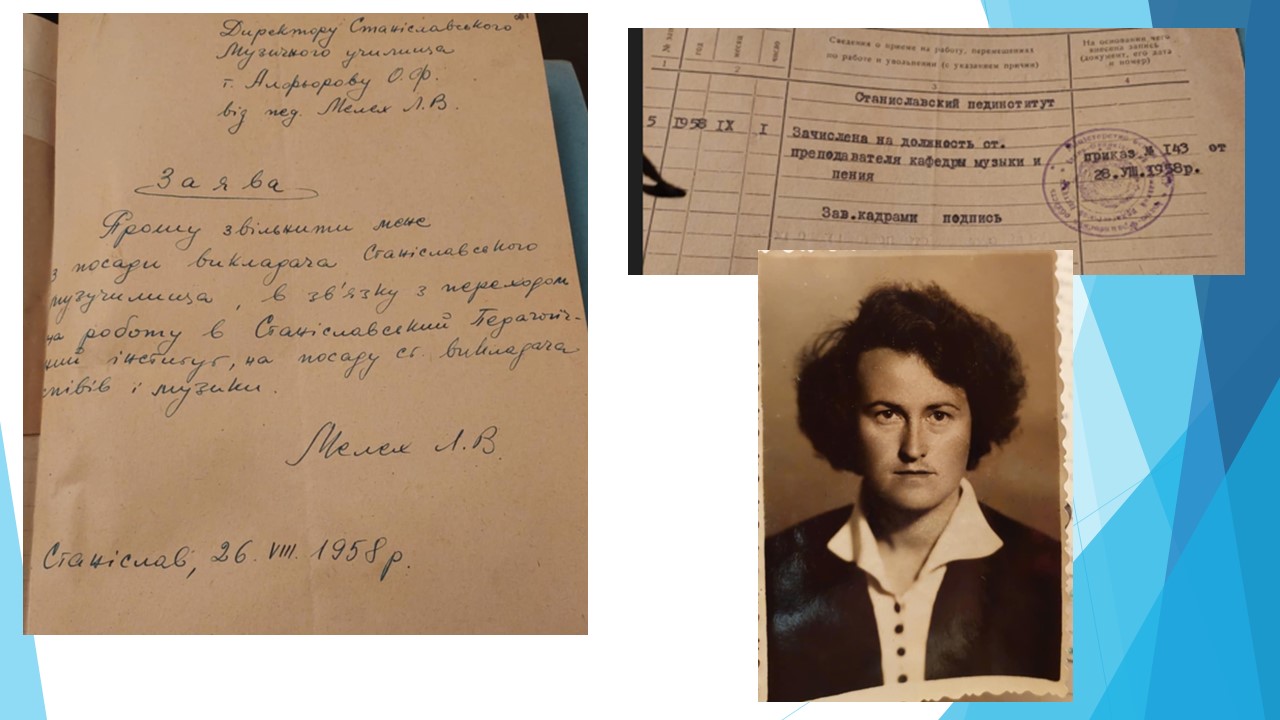 Директору Станіславського
Музичного училища
т. Алфьорову О. Ф.
від пед. Мелех Л. В.
Заява
Прошу звільнити мене
з посади викладача Станіславського
музучилища, в зв'язку з переходом
на роботу в Станіславський Педагогіч-
ний інститут, на посаду ст. викладача
співів і музики.
Мелех Л. В.
Станіслав, 26. VIII. 1958 р.
год
месяц
число
Сведения о приеме на работу, перемещениях
по работе и увольнении (с указанием причин)
На основании чего
внесена запись
(документ, его дата
и номер)
1
2
3
4
Станиславский пединститут
5 1958 IX I
Зачислена на должность ст.
преподавателя кафедры музыки и
пения
приказ № 143 от
28.VIII.1958р.
Зав.кадрами подпись